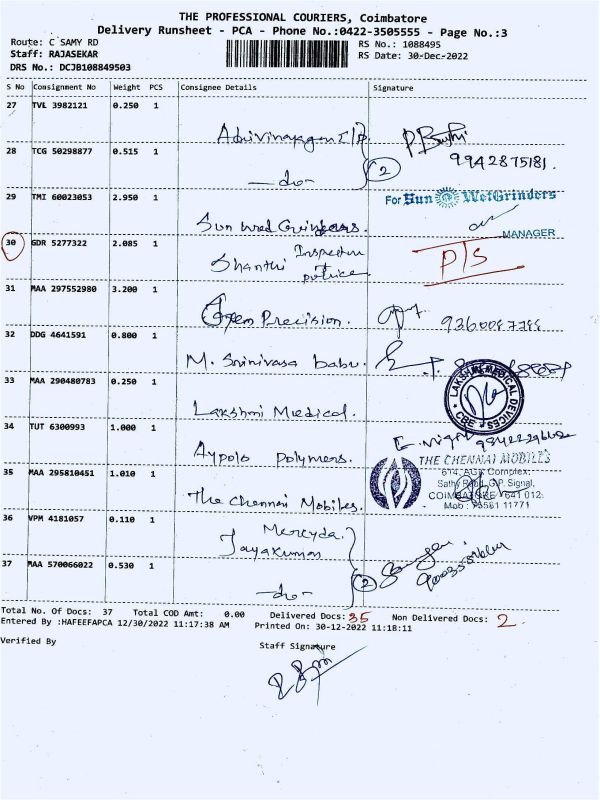 THE PROFESSIONAL COURIERS, Coimbatore
Delivery Runsheet - PCA - Phone No.:0422-3505555 - Page No.:3
Route: C SAMY RD
RS No.: 1088495
Staff: RAJASEKAR
RS Date: 30-Dec-2022
DRS No.: DCJB108849503
S No Consignment No Weight PCS Consignee Details Signature
27 TVL 3982121 0.250 1
28 TCG 50298877 0.515 1
-do- 2
9942875181.
29 TMI 60023053 2.950 1
Sun Wed Grinders.
For Sun WetGrinders
MANAGER
30 GDR 5277322 2.085 1
Shanthi Inspector police
P/S
31 MAA 297552980 3.200 1
Precision.
32 DDG 4641591 0.800 1
M. Srinivasa babu.
33 MAA 290480783 0.250 1
Lakshmi Medical.
LAKSHMI MEDICAL DEVICES CBE
34 TUT 6300993 1.000 1
Aypolo Polymers.
35 MAA 295810451 1.010 1
The Chennai Mobiles.
THE CHENNAI MOBILES
Complex,
G.P. Signal,
COIMBATORE - 641 012.
11771
36 VPM 4181057 0.110 1
Jayakumar
37 MAA 570066022 0.530 1
-do- 2
Total No. Of Docs: 37 Total COD Amt: 0.00 Delivered Docs: 35 Non Delivered Docs: 2.
Entered By :HAFEEFAPCA 12/30/2022 11:17:38 AM Printed On: 30-12-2022 11:18:11
Verified By
Staff Signature